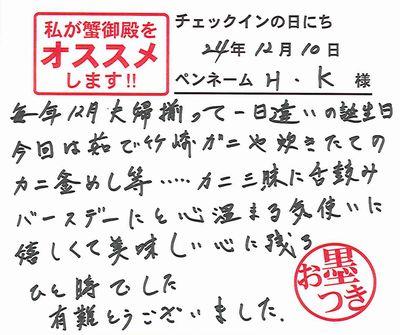 私が蟹御殿を
オススメ
します!!
チェックインの日にち
24年12月10日
ペンネーム H・K 様
毎年12月夫婦揃って一日違いの誕生日
今回は茹で竹崎ガニや炊きたての
カニ釜めし等……カニ三昧に舌鼓み
バースデーにと心温まる気使いに
嬉しくて美味しい心に残る
ひと時でした
有難とうございました.
お墨つき